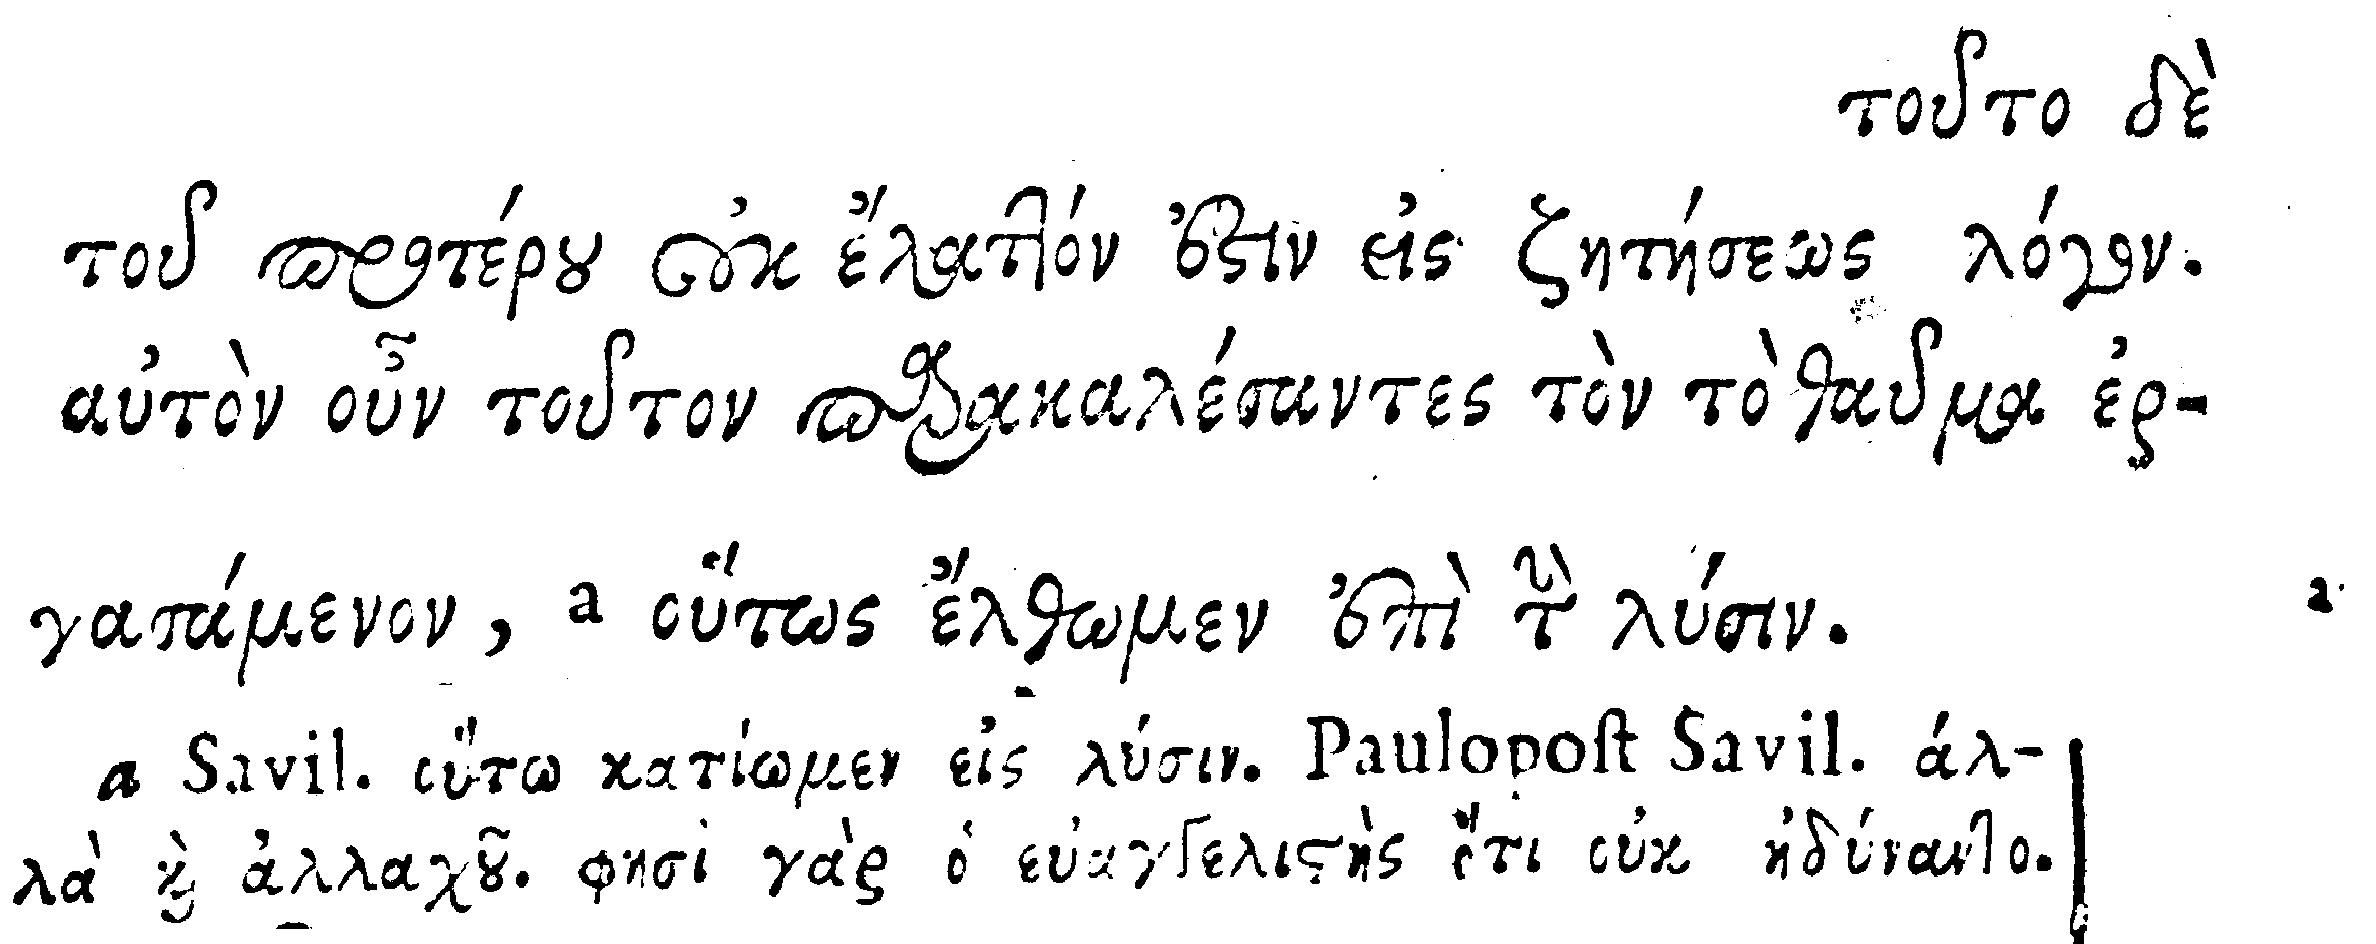 τοῦτο δὲ
τοῦ προτέρου οὐκ ἔλαττόν ἐστιν εἰς ζητήσεως λόγον.
αὐτὸν οὖν τοῦτον παρακαλέσαντες τὸν τὸ θαῦμα ἐρ-
γασάμενον, a οὕτως ἔλθωμεν ἐπὶ τὴν λύσιν. a
a Savil. οὕτω κατίωμεν εἰς λύσιν. Paulopost Savil. ἀλ-
λὰ καὶ ἀλλαχοῦ. φησὶ γὰρ ὁ εὐαγγελιστὴς ὅτι οὐκ ἠδύναντο.